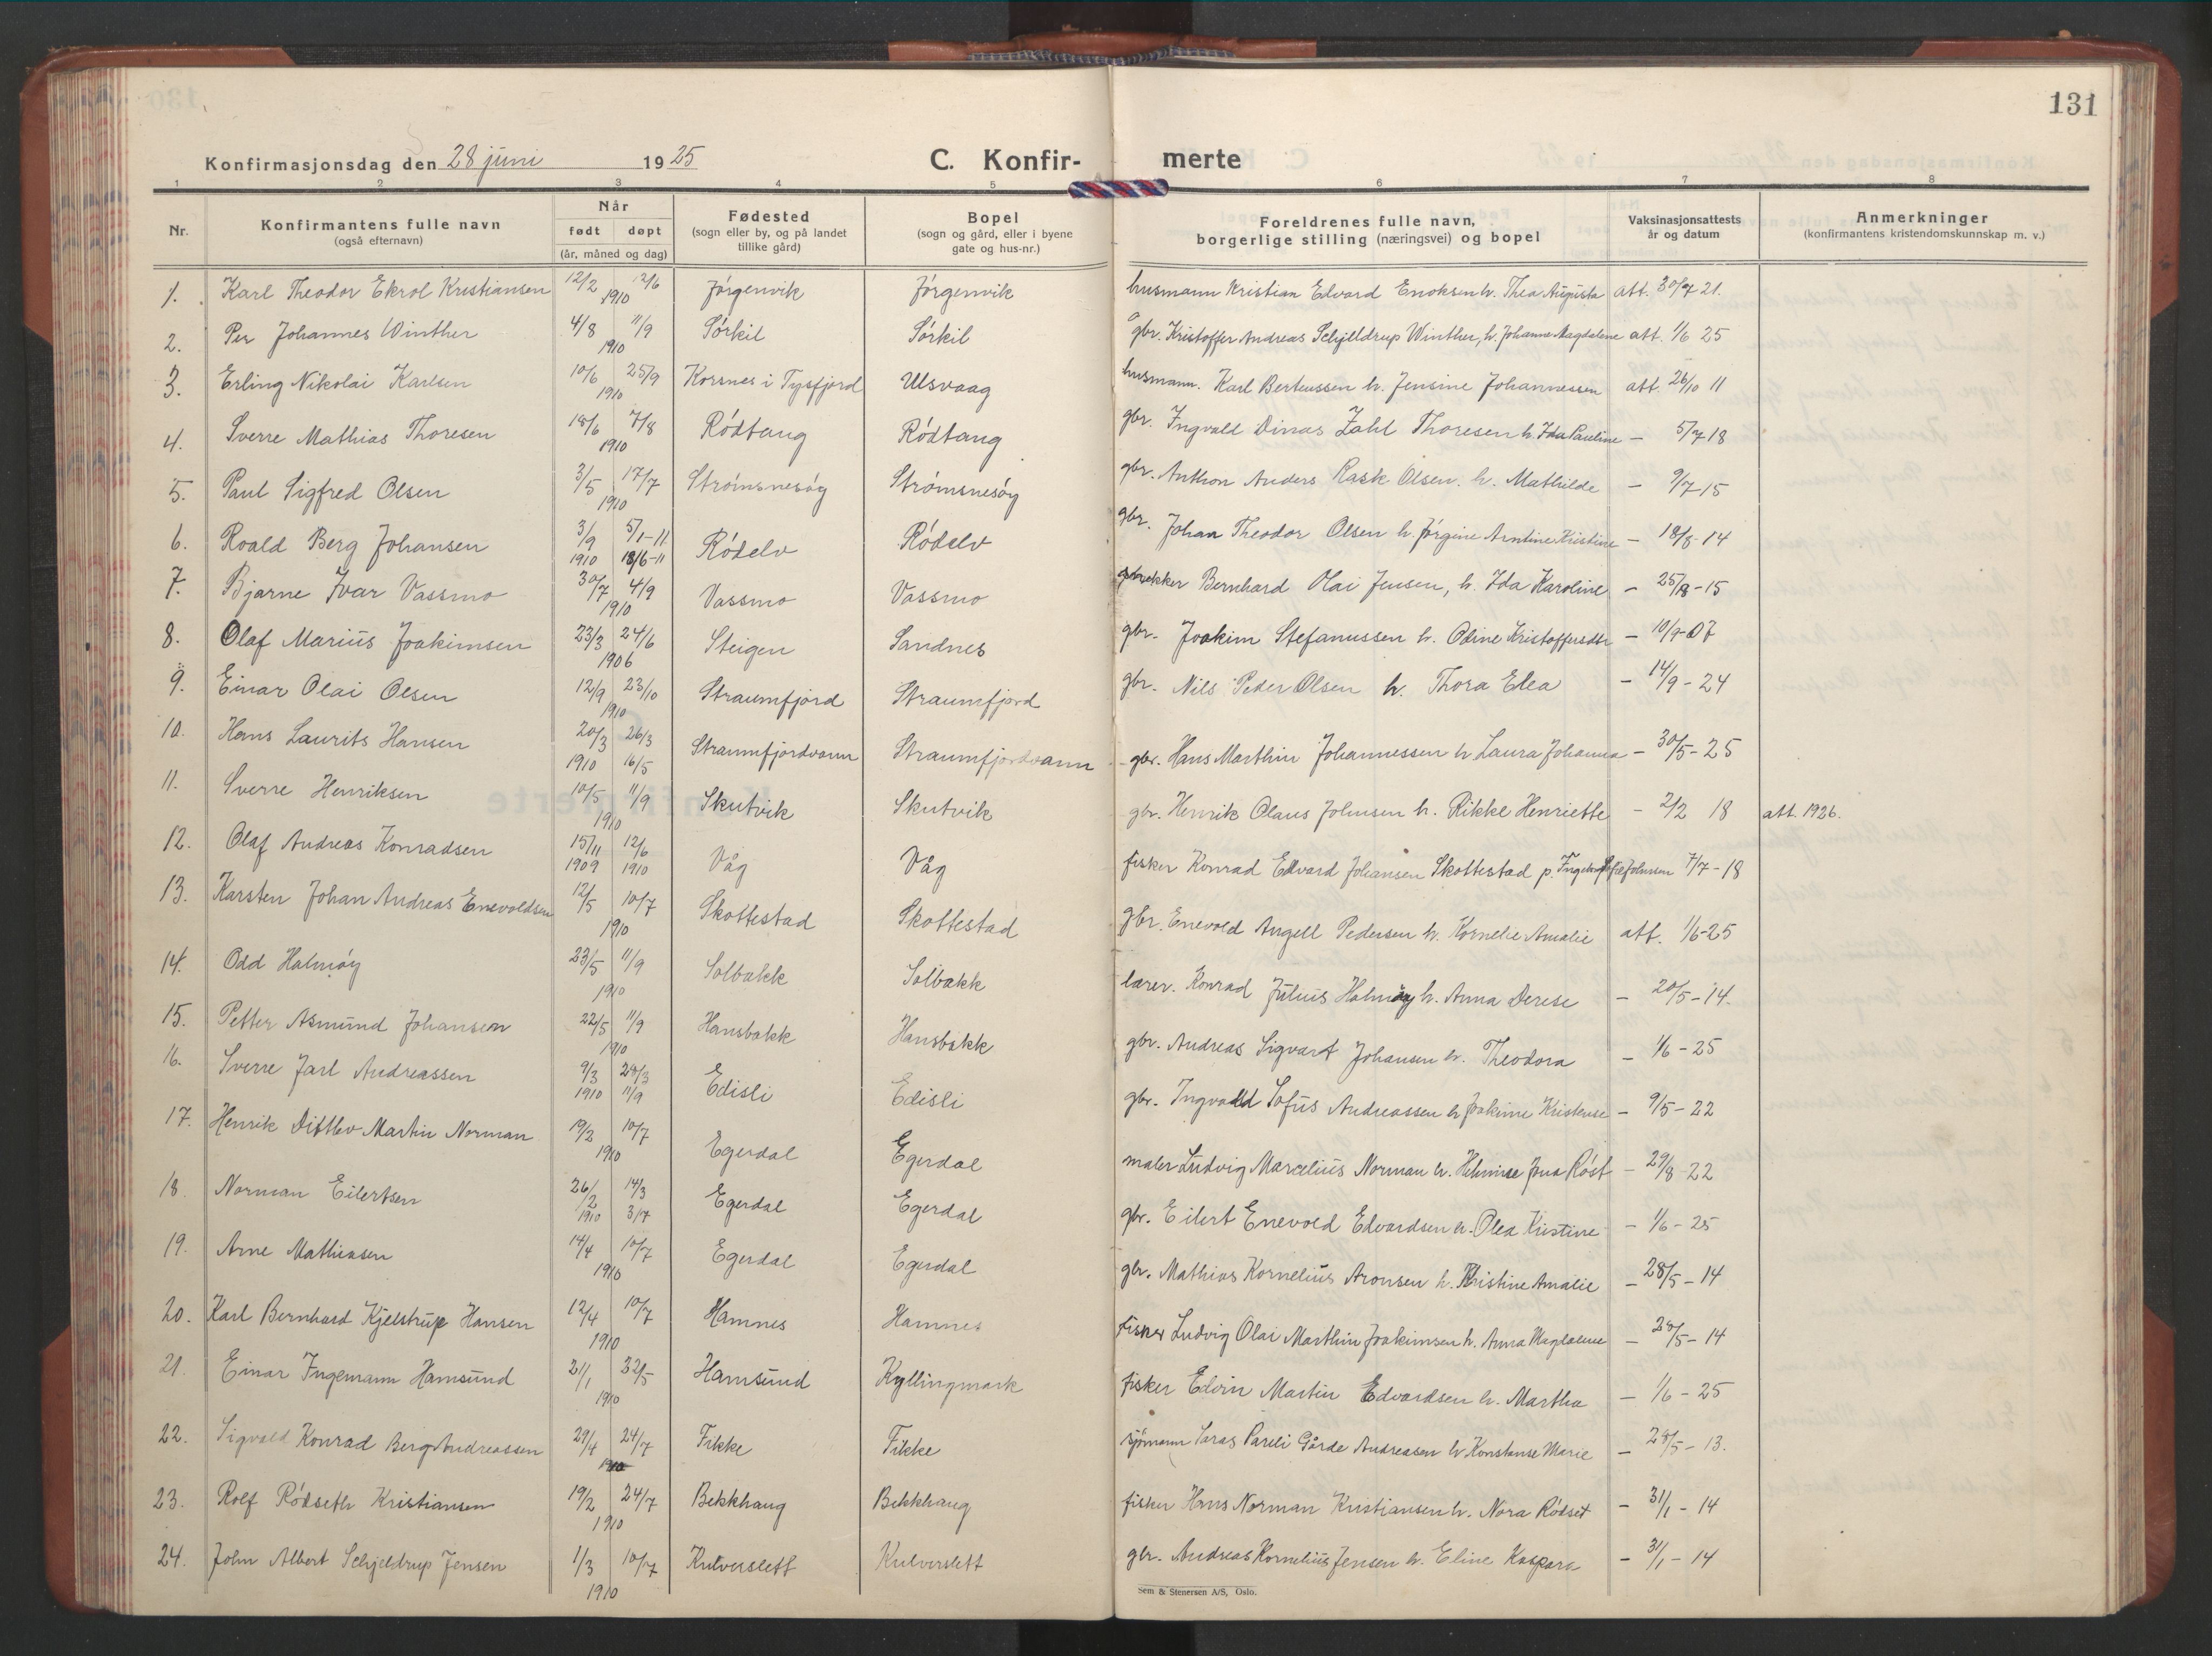 131
Konfirmasjonsdag den 28 juni 1925 C. Konfir- merte
1 2 3 4 5 6 7 8
Nr. Konfirmantens fulle navn (også efternavn) Når født døpt (år, måned og dag) Fødested (sogn eller by, og på landet tillike gård) Bopel (sogn og gård, eller i byene gate og hus-nr.) Foreldrenes fulle navn, borgerlige stilling (næringsvei) og bopel Vaksinasjonsattests år og datum Anmerkninger (konfirmantens kristendomskunnskap m. v.)
1. Karl Theodor Ekrol Kristiansen 12/2 12/6 1910 Jørgenvik Jørgenvik husmann Kristian Edvard Enoksen h. Thea Augusta att. 30/7 21.
2. Per Johannes Winther 4/8 11/9 1910 Sørkil Sørkil gbr. Kristoffer Andreas Schjelldrup Winther, h. Johanne Magdalene att. 1/6 25
3. Erling Nikolai Karlsen 10/6 25/9 1910 Korsnes i Tysfjord Ulsvaag husmann. Karl Berteussen h. Jensine Johannessen att. 26/10 11
4. Sverre Mathias Thoresen 18/6 7/8 1910 Rødtang Rødtang gbr. Ingvald Dinas Zahl Thoresen h. Ida Pauline - 5/7 18
5. Paul Sigfred Olsen 3/5 17/7 1910 Strømsnesøy Strømsnesøy gbr. Anthon Anders Rask Olsen. h. Mathilde - 9/7 15
6. Roald Berg Johansen 3/9 5/1-11 1910 18/6-11 Rødelv Rødelv gbr. Johan Theodor Olsen h. Jørgine Arntine Kristine - 18/8 14
7. Bjarne Ivar Vassmo 30/7 4/9 1910 Vassmo Vassmo Bernhard Olai Jensen, h. Ida Karoline - 25/8-15
8. Olaf Marius Joakimsen 23/3 24/6 1906 Steigen Sandnes gbr. Joakim Stefanussen h. Odine Kristoffersdtr - 10/9-07
9. Einar Olai Olsen 12/9 23/10 1910 Straumfjord Straumfjord gbr. Nils Peder Olsen h. Thora Elea - 14/9-24
10. Hans Laurits Hansen 20/3 26/3 1910 16/5 Straumfjordvann Straumfjordvann gbr. Hans Marthin Johannessen h Laura Johanna - 30/5-25
11. Sverre Henriksen 10/5 11/9 1910 Skutvik Skutvik gbr. Henrik Olaus Johnsen h. Rikke Henriette - 2/2 18 att. 1926.
12. Olaf Andreas Konradsen 15/11 12/6 1909 1910 Våg Våg fisker Konrad Edvard Johansen Skottestad p. Johnsen 7/7-18
13. Karsten Johan Andreas Enevoldsen 12/5 10/7 1910 Skottestad Skottestad gbr. Enevold Angell Pedersen h. Kornelie Amalie att. 1/6-25
14. Odd Halmøy 23/5 11/9 1910 Solbakk Solbakk lærer. Konrad Julius Halmøy h. Anna Derese - 20/5-14.
15. Petter Asmund Johansen 22/5 11/9 1910 Hansbakk Hansbakk gbr. Andreas Sigvart Johansen h. Theodora - 1/6-25
16. Sverre Jarl Andreassen 9/3 29/3 1910 11/9 Edisli Edisli gbr. Ingvald Sofus Andreassen h Joakime Kristense - 9/5-22
17. Henrik Ditlev Martin Norman 19/2 10/7 1910 Egerdal Egerdal maler Ludvig Marcelius Norman h. Helmine Jona Røst - 29/8 22
18. Norman Eilertsen 26/2 14/3 1910 3/7 Egerdal Egerdal gbr. Eilert Enevold Edvardsen h. Olea Kristine - 1/6-25
19. Arne Mathiasen 14/4 10/7 1910 Egerdal Egerdal gbr. Mathias Kornelius Aronsen h. Kristine Amalie - 28/5-14
20. Karl Bernhard Kjelstrup Hansen 12/4 10/7 1910 Hamnes Hamnes fisker Ludvig Olai Marthin Joakimsen h. Anna Magdalene - 28/5-14
21. Einar Ingemann Hamsund 21/1 32/5 1910 Hamsund Kyllingmark fisker Edvin Martin Edvardsen h. Martha - 1/6-25
22. Sigvald Konrad Berg Andreassen 29/4 24/7 1910 Fikke Fikke sjømann Laras Pareli Gårde Andreasen h Konstanse Marie - 28/5-13.
23. Rolf Rødseth Kristiansen 19/2 24/7 1910 Bekkhaug Bekkhaug fisker Hans Norman Kristiansen h. Nora Rødset - 31/1-14
24. John Albert Schjeldrup Jensen 1/3 10/7 1910 Kulverslett Kulverslett gbr. Andreas Kornelius Jensen h. Eline Kaspara - 31/1-14
Sem & Stenersen A/S, Oslo.